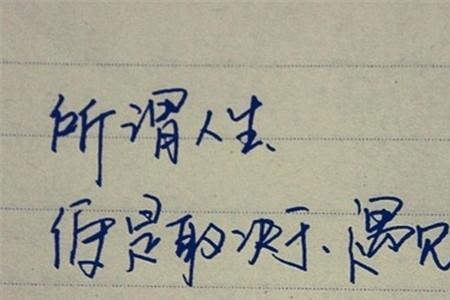 所谓人生、
便是取决于、遇见